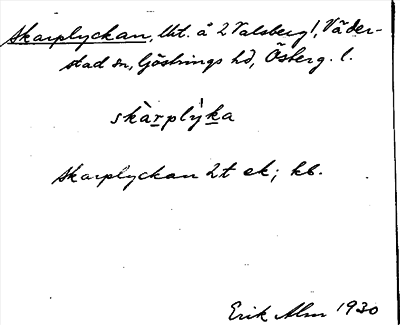 Skarplyckan, lht. å 2 Valsberg/, Väder-
stad sn, Göstrings hd, Österg. l.
skàrplỳka
Skarplyckan 2t ek; kb.
Erik Alm 1930